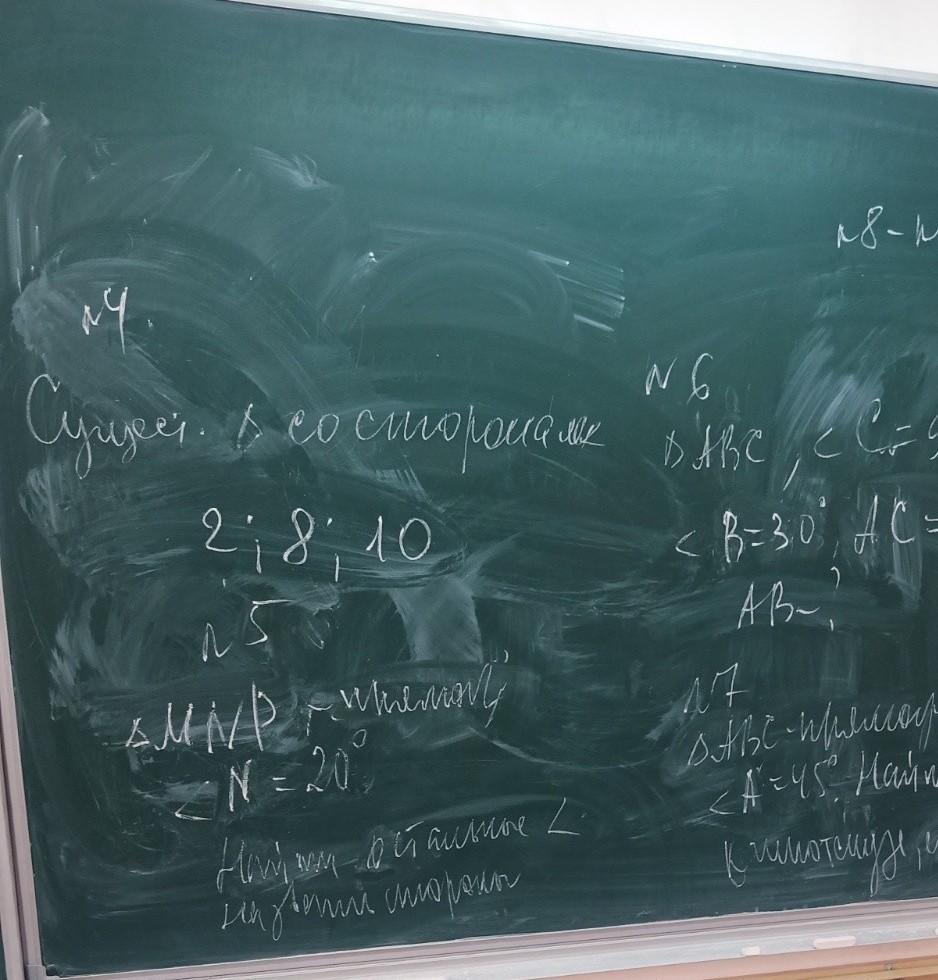 н4.
Сущест. Δ со сторонами
2; 8; 10
н5
ΔMNP - прямоу
< N = 20°
Найти остальные <
назвать стороны
н8-н
N 6
ΔABC, < C = 9
< B = 30°, AC =
AB - ?
н7
ΔABC - прямоуг
< A = 45°. Найти
к гипотенузе,